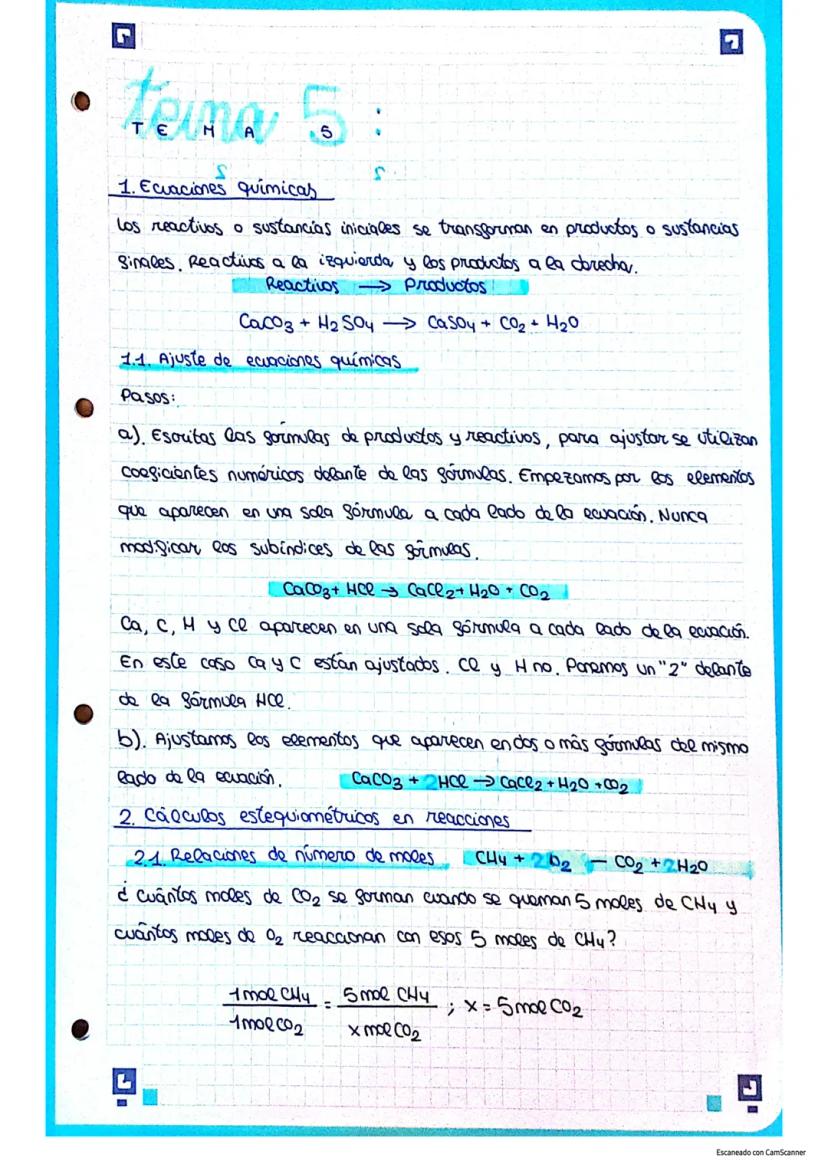 tema 5:
TEMA 5
1. Ecuaciones químicas
Los reactivos o sustancias iniciales se transforman en productos o sustancias
finales. Reactivos a la izquierda y los productos a la derecha.
Reactivos → Productos
CaCO₃ + H₂SO₄ → CaSO₄ + CO₂ + H₂O
1.1. Ajuste de ecuaciones químicas
Pasos:
a). Escritas las fórmulas de productos y reactivos, para ajustar se utilizan
coeficientes numéricos delante de las fórmulas. Empezamos por los elementos
que aparecen en una sola fórmula a cada lado de la ecuación. Nunca
modificar los subíndices de las fórmulas.
CaCO₃ + HCl → CaCl₂ + H₂O + CO₂
Ca, C, H y Cl aparecen en una sola fórmula a cada lado de la ecuación.
En este caso Ca y C están ajustados. Cl y H no. Ponemos un "2" delante
de la fórmula HCl.
b). Ajustamos los elementos que aparecen en dos o más fórmulas del mismo
lado de la ecuación. CaCO₃ + 2HCl → CaCl₂ + H₂O + CO₂
2. Cálculos estequiométricos en reacciones
2.1. Relaciones de número de moles CH₄ + 2O₂ — CO₂ + 2H₂O
¿Cuántos moles de CO₂ se forman cuando se queman 5 moles de CH₄ y
cuántos moles de O₂ reaccionan con esos 5 moles de CH₄?
1mol CH₄ / 1mol CO₂ = 5mol CH₄ / x mol CO₂ ; x = 5mol CO₂
Escaneado con CamScanner